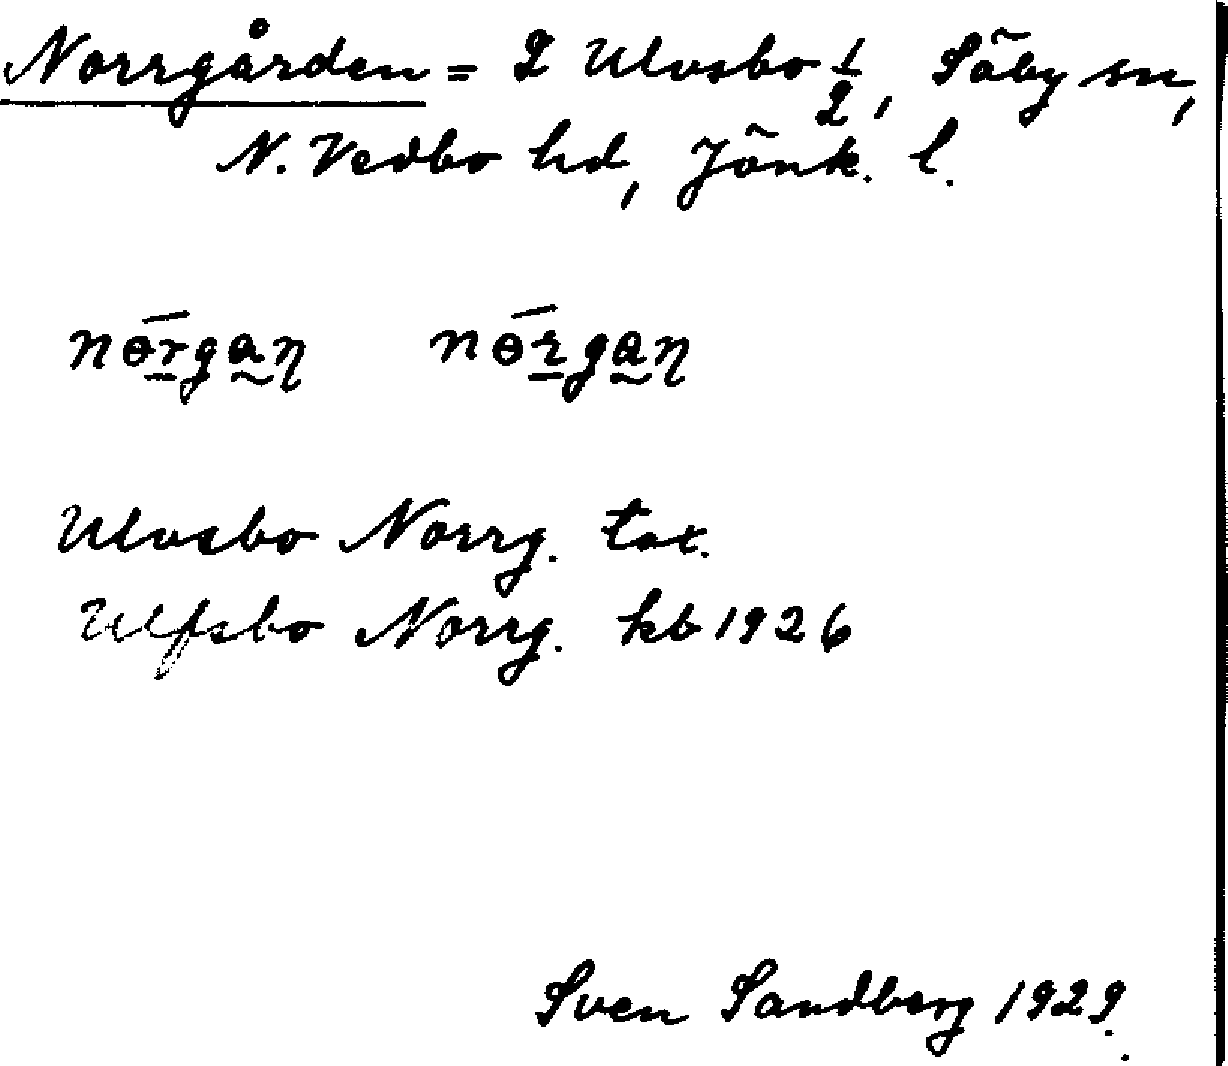 Norrgården = 2 Ulvsbo 1/2, Säby sn,
N. Vedbo hd, Jönk. l.
nɵ́rgan̡ nɵ́rgan̡
Ulvsbo Norrg. tax.
Ulfsbo Norrg. kb 1926
Sven Sandberg 1929.